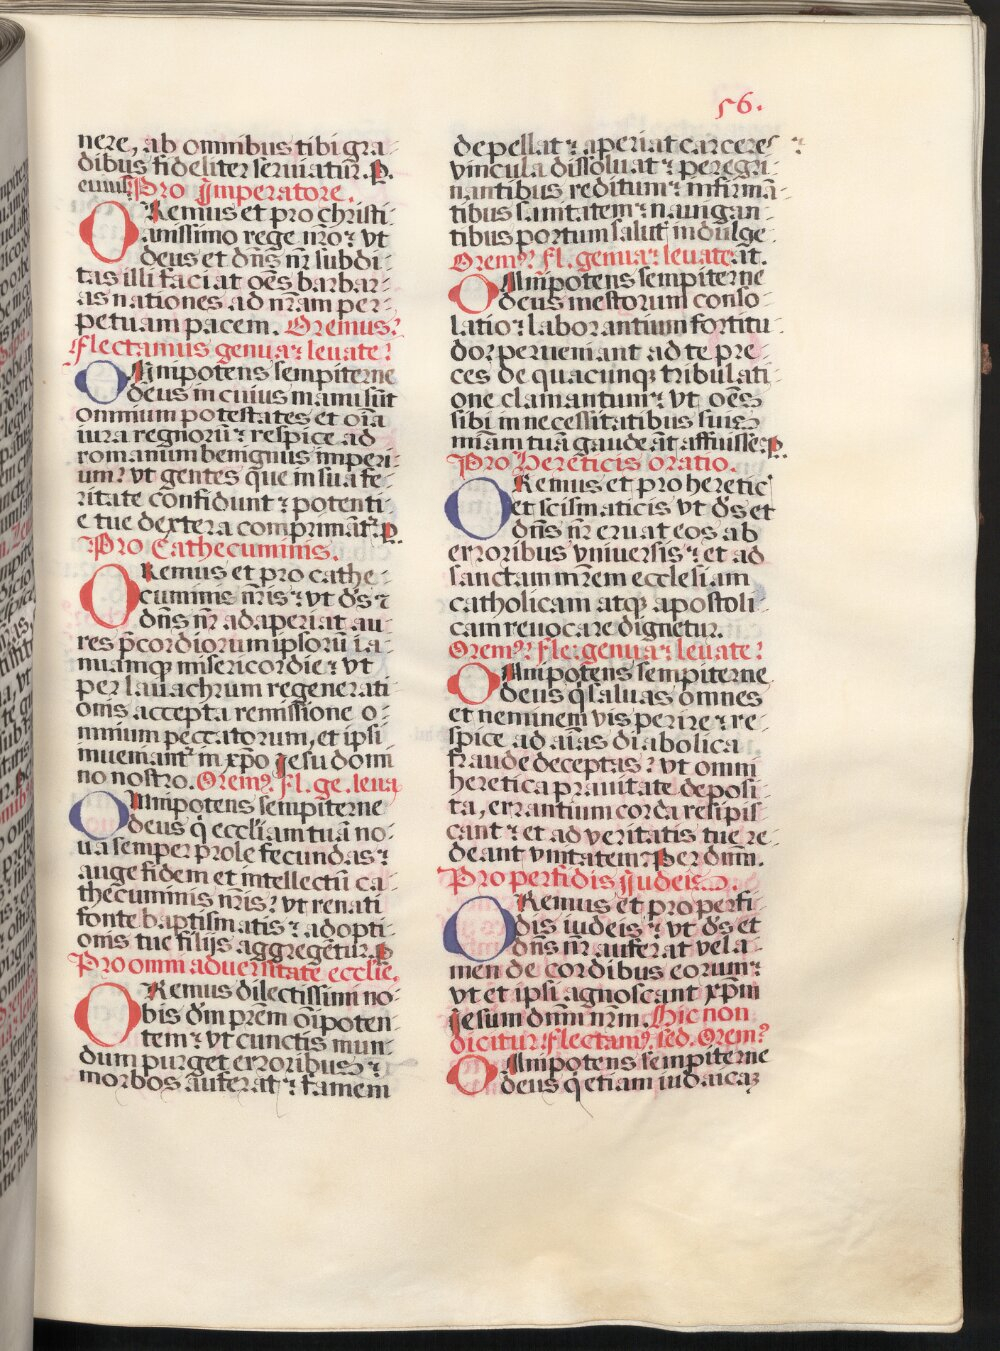 56.
nere, ab omnibus tibi gra
dibus fideliter seruiatur̄. P.
eumd Pro Imperatore.
ORemus et pro christi
anissimo rege nr̄o: vt
deus et dn̄s nr̄ subdi
tas illi faciat oēs barbar
as nationes ad nr̄am per
petuam pacem. Oremus:
Flectamus genua: leuate:
OMnipotens sempiterne
deus in cuius manu sūt
omnium potestates et oīa
iura regnorū: respice ad
romanum benignus imperi
um: vt gentes que in sua fe
ritate confidunt: potenti
e tue dextera comprimāt². P.
Pro Cathecuminis.
ORemus et pro cathe
cuminis nr̄is: vt ds̄ :
dn̄s nr̄ adaperiat au
res p̄cordiorum ipsorū ia
nuamq; misericordie: vt
per lauachrum regenerati
onis accepta remissione o
mnium peccatorum, et ipsi
inueniant² in xp̄o Jesu domi
no nostro. Orem⁹. Fl. ge. leua
OMnipotens sempiterne
deus q̄ eccl̄iam tuā no
ua semper prole fecundas:
auge fidem et intellectū ca
thecuminis nr̄is: vt renati
fonte baptismatis: adopti
onis tue filijs aggregētur. P
Pro omni aduersitate eccl̄ie.
ORemus dilectissimi no
bis dm̄ prēm oīpoten
tem: vt cunctis mun
dum purget erroribus:
morbos auferat: famem
depellat: aperiat carceres
vincula dissoluat: peregri
nantibus reditum: infirmā
tibus sanitatem: nauigan
tibus portum salut² indulge
Orem⁹: Fl. genua: leuate: at.
OMnipotens sempiterne
deus mestorum conso
latio: laborantium fortitu
do: perueniant ad te pre
ces de quacunq; tribulati
one clamantum: vt oēs
sibi in necessitatibus suis
miām tuā gaudeāt affuisse. P.
Pro Hereticis oratio.
ORemus et pro heretic⁹
et scismaticis vt ds̄ et
dn̄s nr̄ eruat eos ab
erroribus vniuersis: et ad
sanctam mr̄em ecclesiam
catholicam atq; apostoli
cam reuocare dignetur.
Orem⁹: Fle: genua: leuate:
OMnipotens sempiterne
deus q̄ saluas omnes
et neminem vis perire: re
spice ad aīas diabolica
fraude deceptas: vt omni
heretica prauitate deposi
ta, errantium corda resipis
cant: et ad veritatis tue re
deant vnitatem: Per dn̄m.
Pro perfidis Judeis.
ORemus et pro perfi
dis iudeis: vt ds̄ et
dn̄s nr̄ auferat vela
men de cordibus eorum:
vt et ipsi agnoscant xp̄m
Jesum dn̄m nr̄m. Hic non
dicitur: flectam⁹. sed. Orem⁹:
OMnipotens sempiterne
deus q̄ etiam iudaicaꝫ